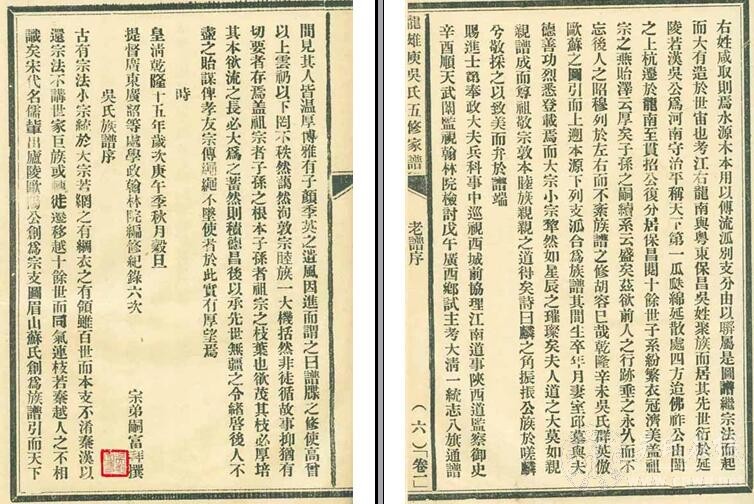 右姓咸取則焉水源木本用以傳流派別支分由以聯屬是圖譜繼宗法而起
而大有造於世宙也考江右龍南與粵東保昌吳姓聚族而居其先世衍於延
陵若漢吳公為河南守治平稱天下第一瓜瓞綿延散處四方迨佛祚公由閩
之上杭遷於龍南至貫招公復分居保昌閱十餘世子系紛繁衣冠濟美蓋祖
宗之燕貽澤云厚矣子孫之嗣續系云盛矣茲欲前人之行跡垂之永久而不
忘後人之昭穆列於左右而不紊族譜之修胡容巳哉乾隆辛未吳氏群英倣
歐蘇之圖引而上遡本源下列支派合為族譜其間生卒年月妻室邱墓與夫
德善功烈悉登載焉而大宗小宗犂然如星辰之璀璨矣夫人道之大莫如親
親譜成而尊祖敬宗敦本睦族親親之道得矣詩曰麟之角振振公族於嗟麟
兮敬採之以致美而弁於譜端
賜進士第奉政大夫兵科事中巡視西城前協理江南道事陝西道監察御史
辛酉順天武闈監視翰林院檢討戊午廣西鄉試主考大清一統志八旗通譜
龍雄庾吳氏五修家譜 老譜序 (六)「卷一」
聞見其人皆溫厚博雅有子顏季英之遺風因進而謂之曰譜牒之修使高曾
以上雲礽以下罔不秩然藹然洵敦宗睦族一大機括然非徒循故事抑猶有
切要者存焉蓋祖宗者子孫之根本子孫者祖宗之枝葉也欲茂其枝必厚培
其本欲流之長必大為之蓄然則積德昌後以承先世無疆之令緒啓後人不
盡之貽謀俾孝友宗傳繩繩不墜使者於此實有厚望焉
時
皇清乾隆十五年歲次庚午季秋月穀旦
提督廣東廣韶等處學政翰林院編修紀錄六次 宗弟嗣富拜撰
吳氏族譜序
古有宗法小宗統於大宗若網之有綱衣之有領雖百世而本支不淆秦漢以
還宗法不講世家巨族或轉徙遷移越十餘世而同氣連枝若秦越人之不相
識矣宋代名儒輩出廬陵歐陽公創為宗支圖眉山蘇氏創為族譜引而天下